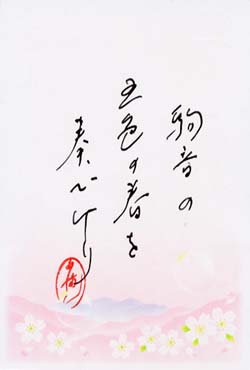 駒音の
五色の春を
奏でけり